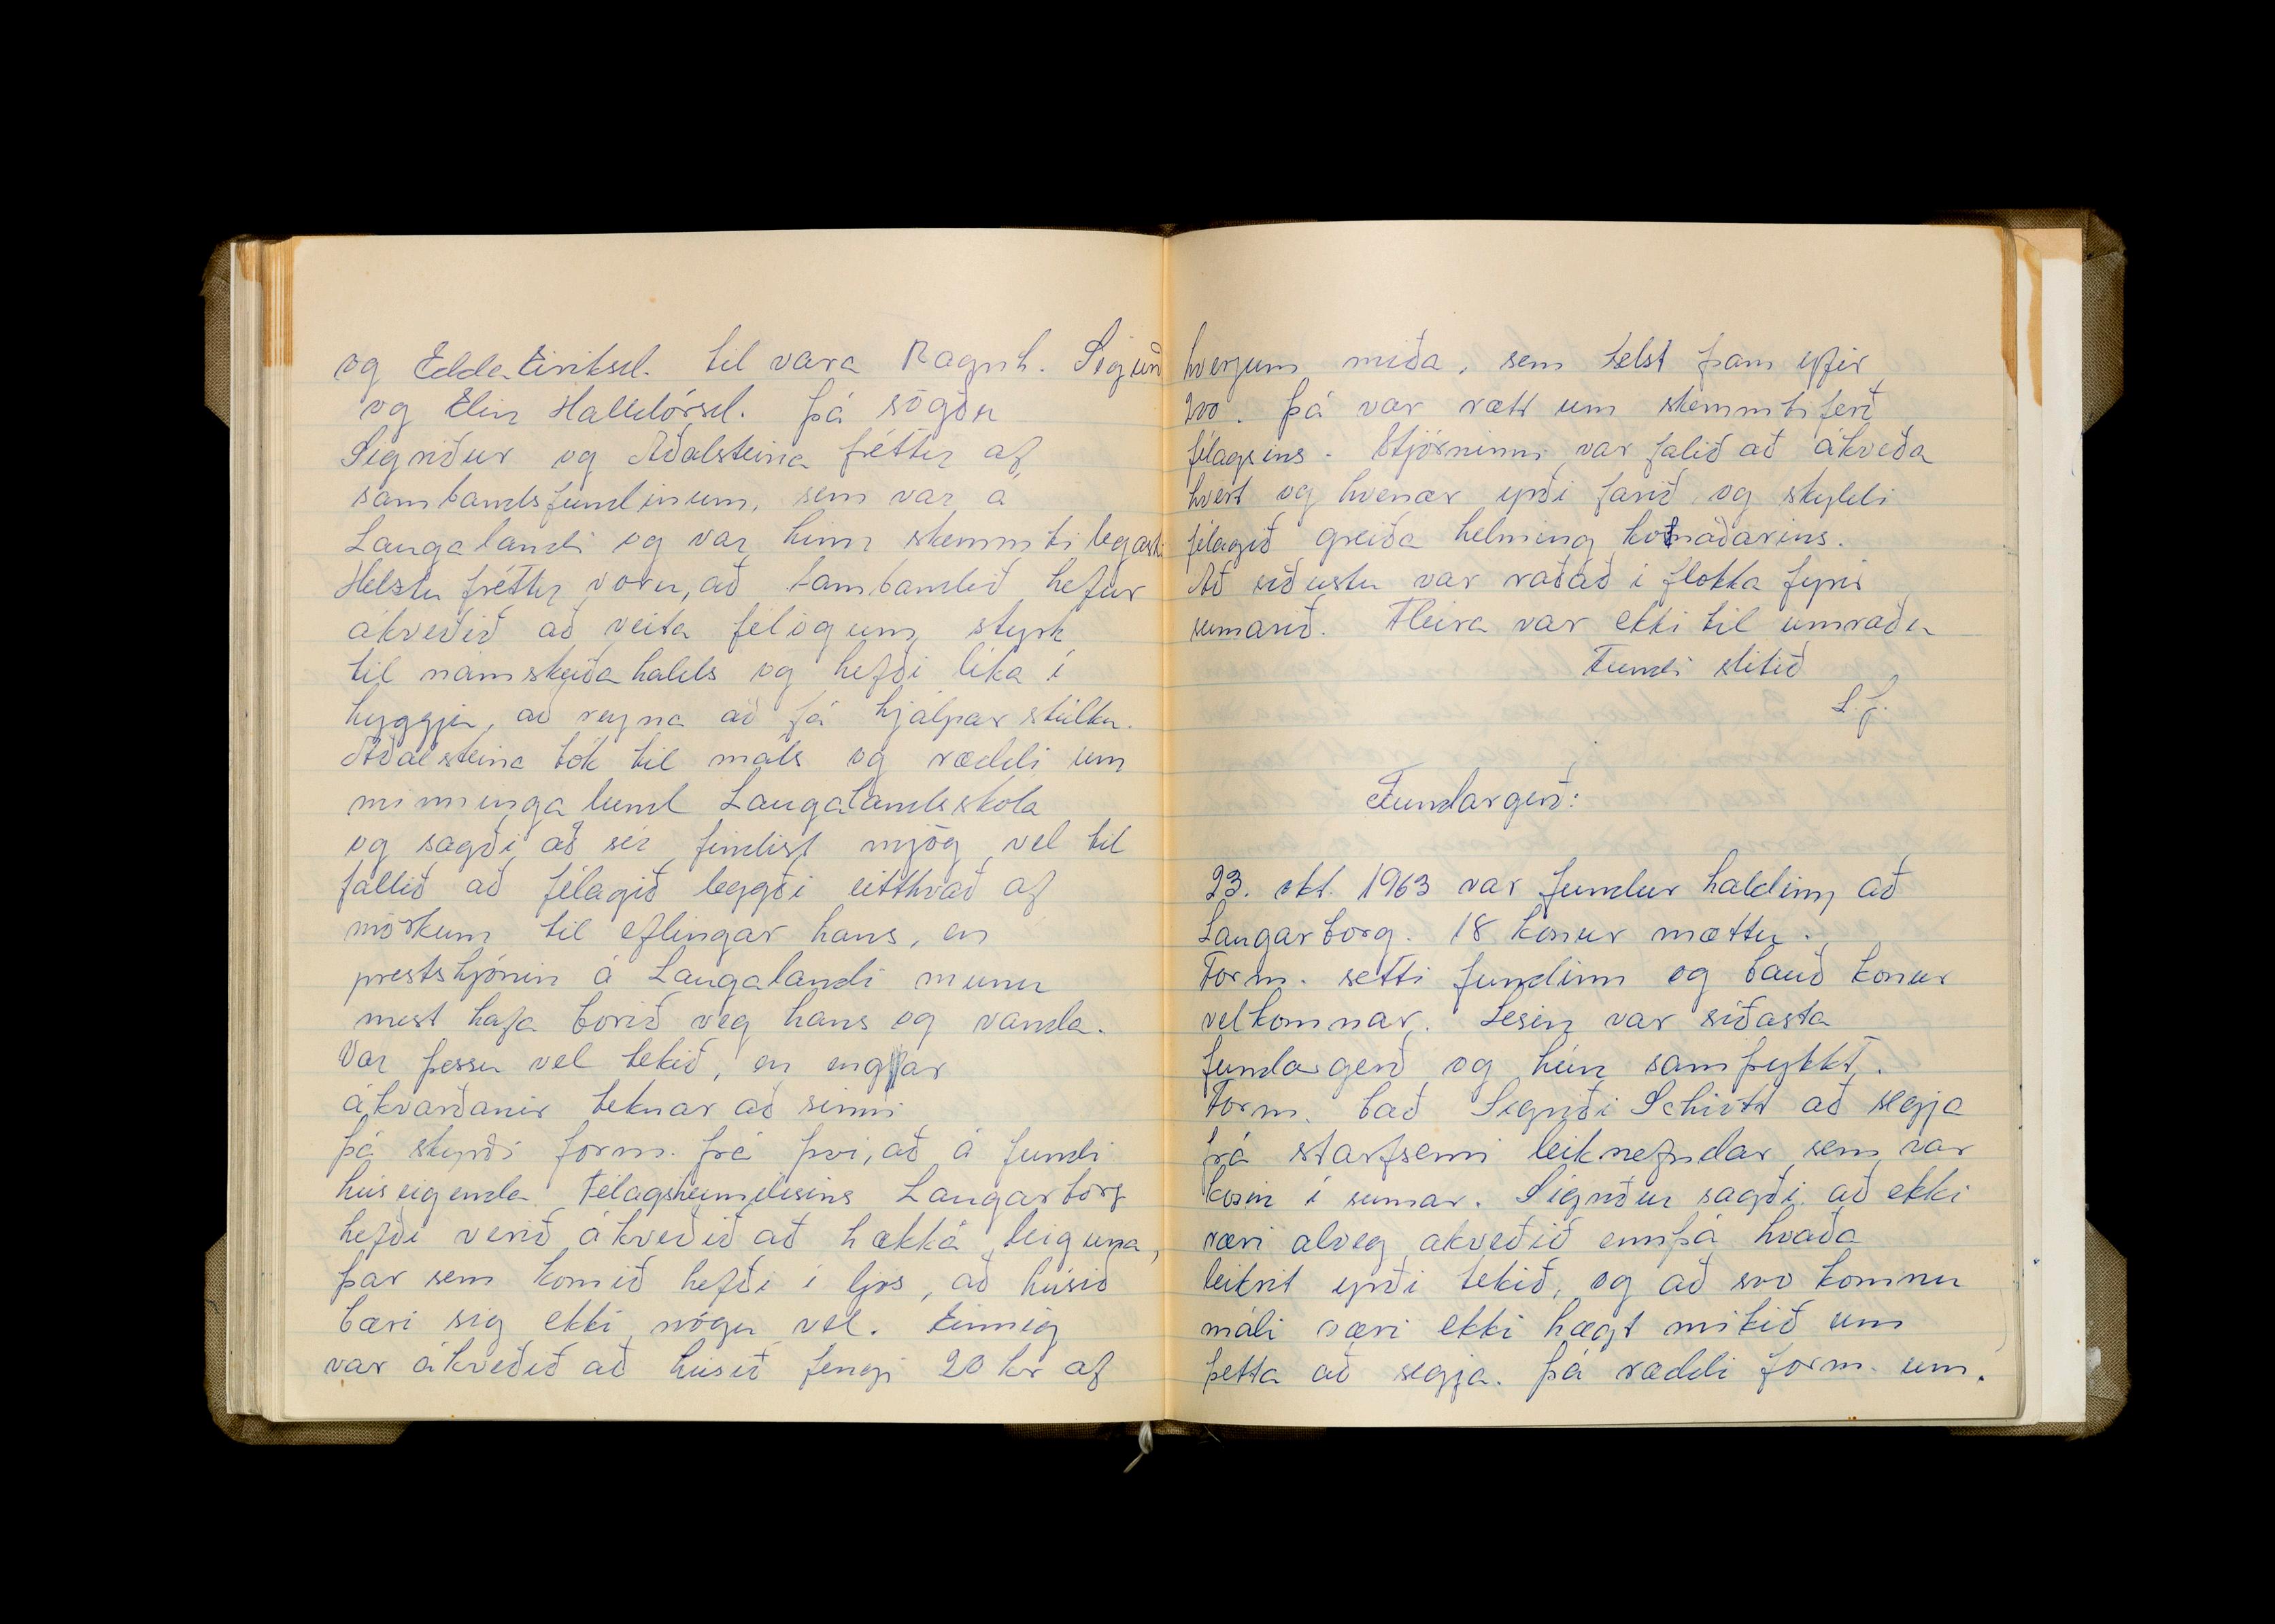 og Edda Eiríksd. til vara Ragnh. Sigurð
og Elin Halldórsd. þá sögðu
Sigríður og Aðalsteina fréttir af
sambandsfundinum, sem var á
Laugalandi og var hinn skemmtilegasti
Helstu fréttir voru, að sambandið hefur
ákveðið að veita félögum styrk
til námskeiðahalds og hefði líka í
hyggju, að reyna að fá hjálparstúlku.
Aðalsteina tók til máls og ræddi um
minningalund Laugalandsskóla
og sagði að sér findist mjög vel til
fallið að félagið leggði eitthvað af
mörkum til eflingar hans, en
prestshjónin á Laugalandi munu
mest hafa borið veg hans og vanda.
Var þessu vel tekið, en engar
ákvarðanir teknar að sinni
þá skyrði form. frá því, að á fundi
húseigenda Félagsheimilisins Laugarborg
hefði verið ákveðið að hækka leiguna,
þar sem komið hefði í ljós, að húsið
bæri sig ekki nógu vel. Einnig
var ákveðið að húsið fengi 20 kr af
hverjum miða, sem selst fram yfir
200. þá var rætt um skemmtiferð
félagsins. Stjórninni var falið að ákveða
hvert og hvenær yrði farið og skyldi
félagið greiða helming kostnaðarins.
Að síðustu var raðað í flokka fyrir
sumarið. Fleira var ekki til umræðu
Fundi slitið
S.J.
Fundargerð:
23. okt. 1963 var fundur haldinn að
Laugarborg. 18 konur mættu.
Form. setti fundinn og bauð konur
velkomnar. Lesin var síðasta
fundargerð og hún samþykkt.
Form. bað Sigríði Schiöth að segja
frá starfsemi leiknefndar sem var
kosin í sumar. Sigríður sagði að ekki
væri alveg ákveðið ennþá hvaða
leikrit yrði tekið, og að svo komnu
máli væri ekki hægt mikið um
þetta að segja. þá ræddi form. um